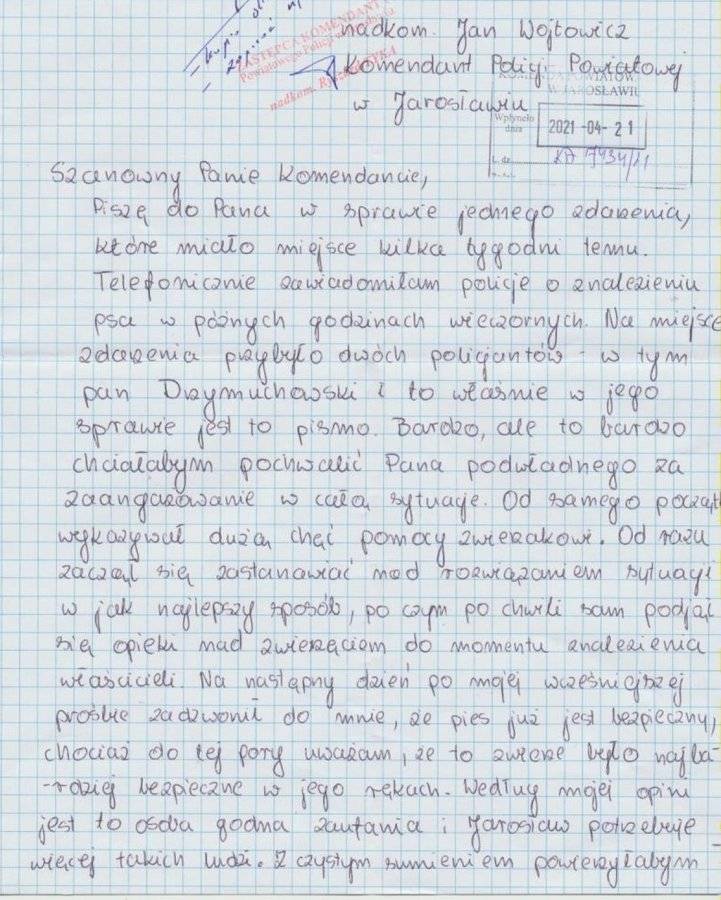 nadkom. Jan Wojtowicz
Komendant Policji Powiatowej
w Jarosławiu
ZASTĘPCA KOMENDANTA
Powiatowej Policji
nadkom.
KOMENDA POWIATOWA
W JAROSŁAWIU
Wpłynęło
dnia
2021 -04- 21
L. dz.
Szanowny Panie Komendancie,
Piszę do Pana w sprawie jednego zdarzenia,
które miało miejsce kilka tygodni temu.
Telefonicznie zawiadomiłam policje o znalezieniu
psa w późnych godzinach wieczornych. Na miejsce
zdarzenia przybyło dwóch policjantów - w tym
pan Drzymuchowski i to właśnie w jego
sprawie jest to pismo. Bardzo, ale to bardzo
chciałabym pochwalić Pana podwładnego za
zaangażowanie w całą sytuację. Od samego począt
wykazywał dużą chęć pomocy zwierzakowi. Od razu
zaczął się zastanawiać nad rozwiązaniem sytuacji
w jak najlepszy sposób, po czym po chwili sam podjął
się opieki nad zwierzęciem do momentu znalezienia
właścicieli. Na następny dzień po mojej wcześniejszej
prośbie zadzwonił do mnie, że pies już jest bezpieczny,
chociaż do tej pory uważam, że to zwierze było najba-
-rdziej bezpieczne w jego rękach. Według mojej opini
jest to osoba godna zaufania i Jarosław potrzebuje
więcej takich ludzi. Z czystym sumieniem powierzyłabym